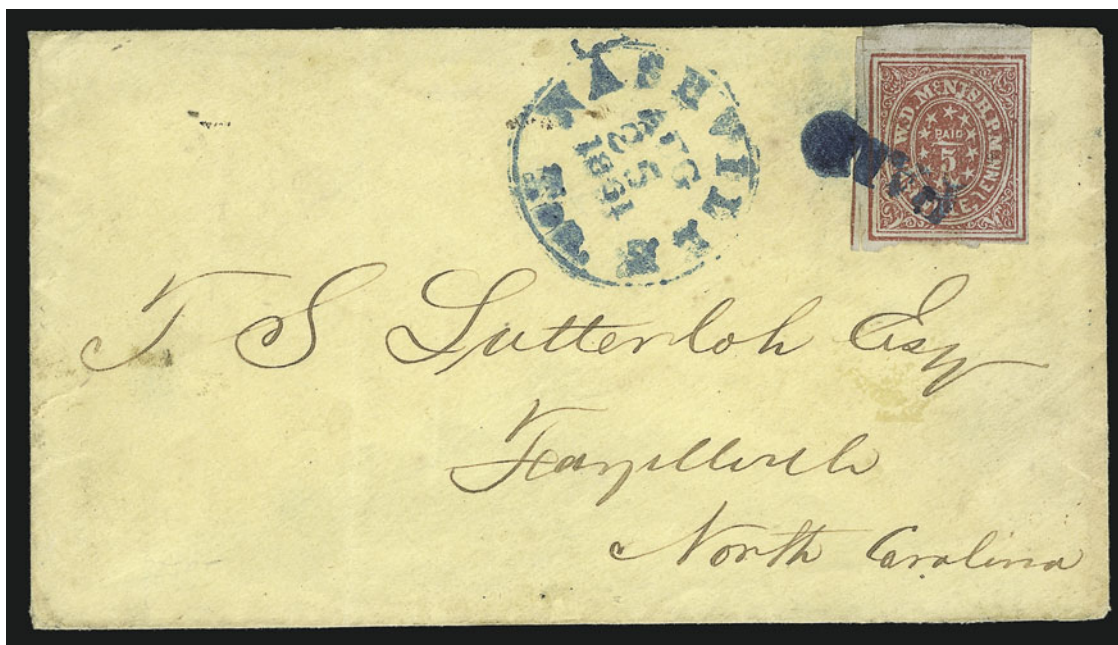 NASHVILLE TEN
AUG
25
1861
W.D. McNISH.P.M.
PAID
5
PAID
T S Lutterloh Esq
Fayetteville
North Carolina